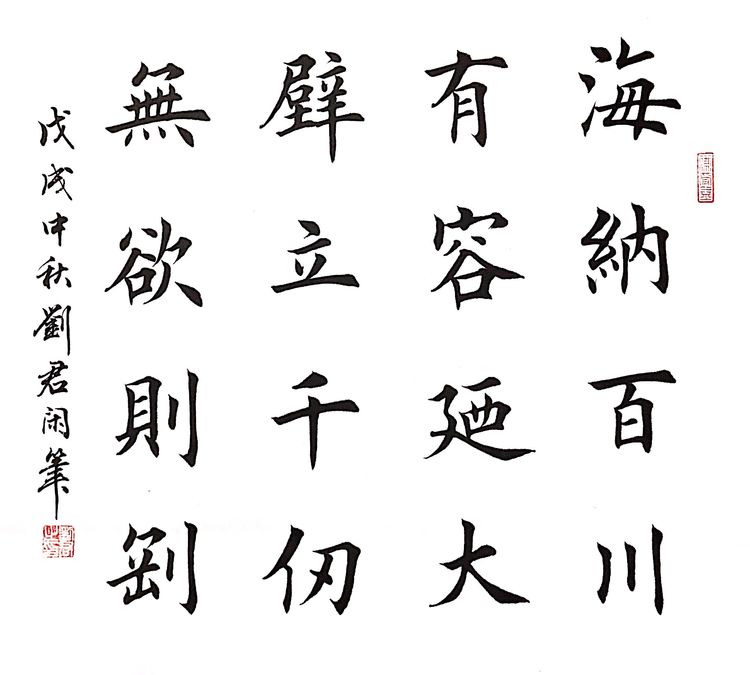 海納百川
有容廼大
壁立千仞
無欲則剛
戊戌中秋劉君閑筆